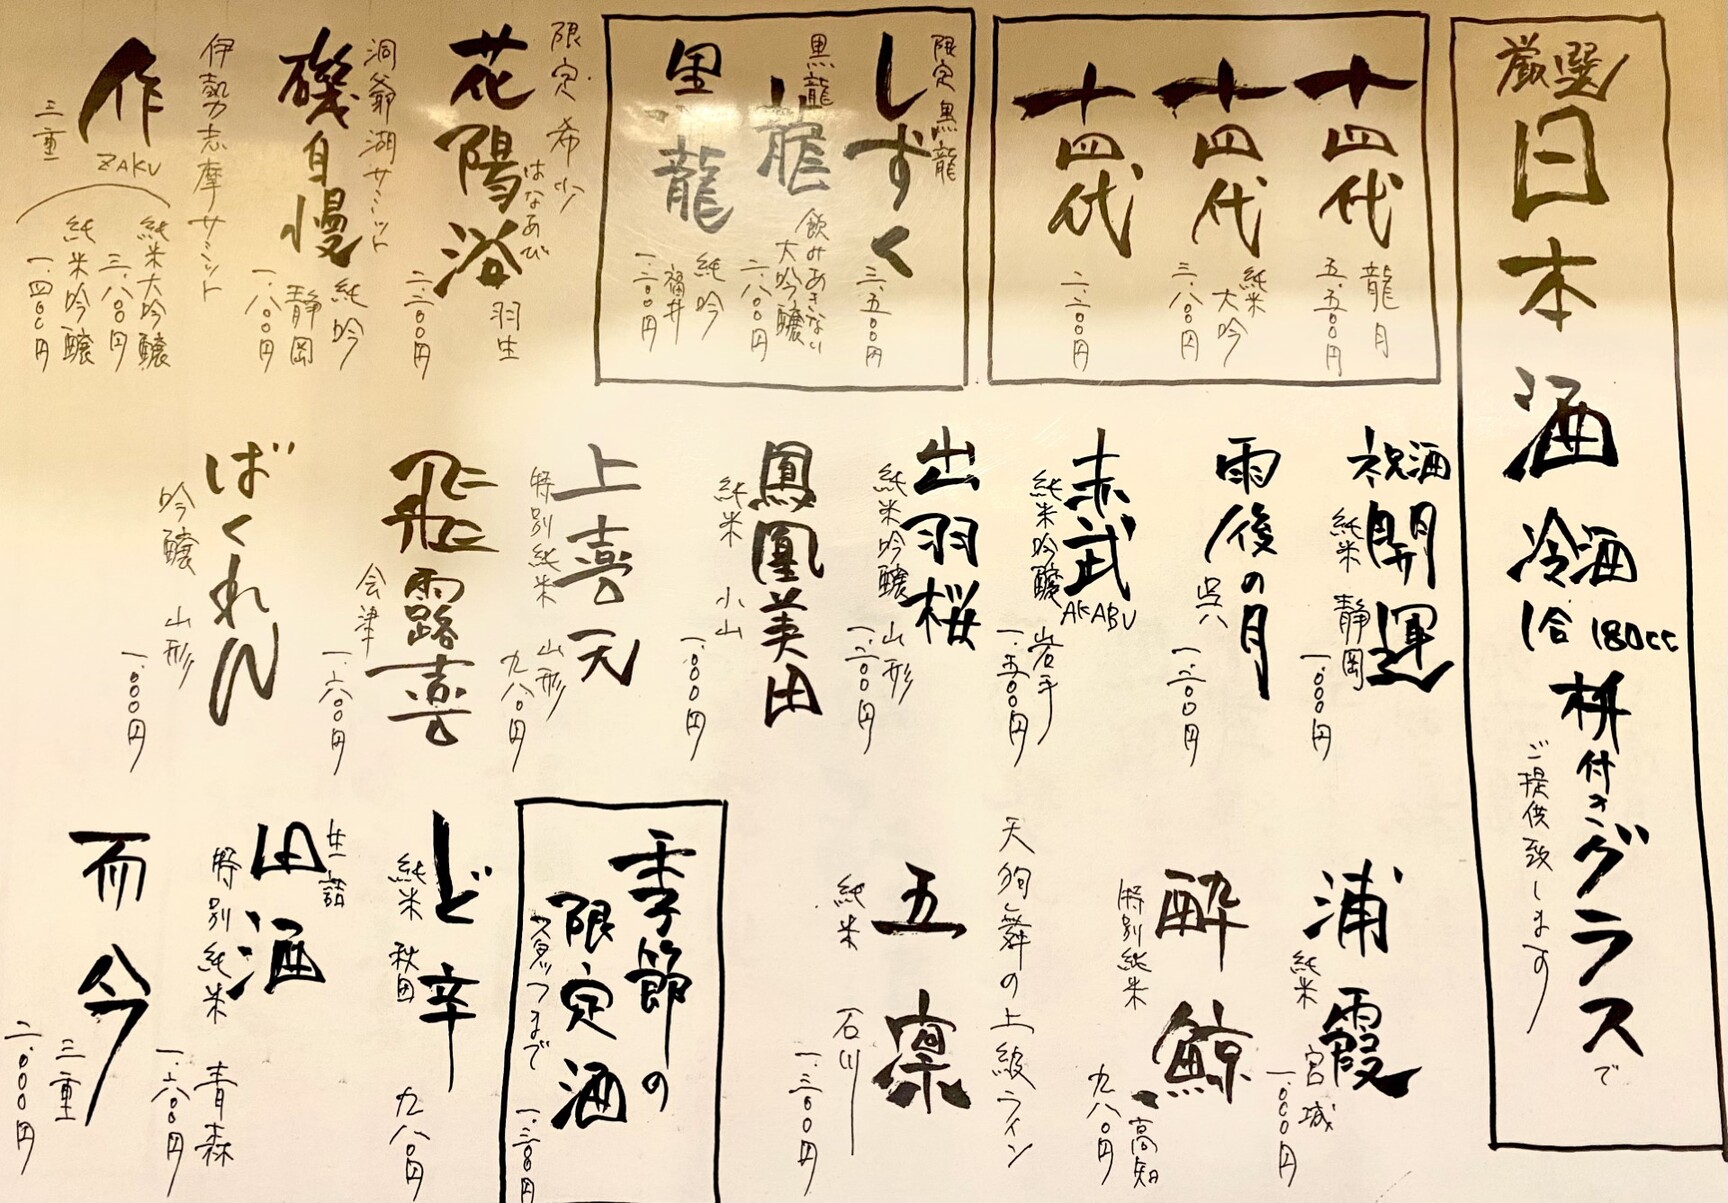 厳選
日本酒
冷酒
1合 180cc
枡付きグラスで
ご提供致します
十四代
龍月
五、五〇〇円
十四代
純米
大吟
三、八〇〇円
十四代
二、二〇〇円
限定 黒龍
しずく
三、五〇〇円
黒龍
龍
飲みあきない
大吟醸
二、八〇〇円
黒龍
純吟
福井
一、二〇〇円
限定 希少
花陽浴
はなあび
羽生
二、二〇〇円
洞爺湖サミット
磯自慢
純吟
静岡
一、八〇〇円
伊勢志摩サミット
作
ZAKU
三重
純米大吟醸
三、八〇〇円
純米吟醸
一、四〇〇円
祝酒
開運
純米 静岡
一、〇〇〇円
雨後の月
呉
一、二〇〇円
赤武
AKABU
純米吟醸 岩手
出羽桜
純米吟醸 山形
一、二〇〇円
鳳凰美田
純米 小山
一、〇〇〇円
上喜元
特別純米 山形
九八〇円
飛露喜
会津
一、六〇〇円
ばくれん
吟醸 山形
一、〇〇〇円
浦霞
純米 宮城
一、〇〇〇円
酔鯨
特別純米 高知
九八〇円
天狗舞の上級ライン
五凛
純米 石川
一、三〇〇円
季節の
限定酒
一、三〇〇円
ど辛
純米 秋田
九八〇円
生詰
田酒
特別純米 青森
一、六〇〇円
而今
三重
二、〇〇〇円